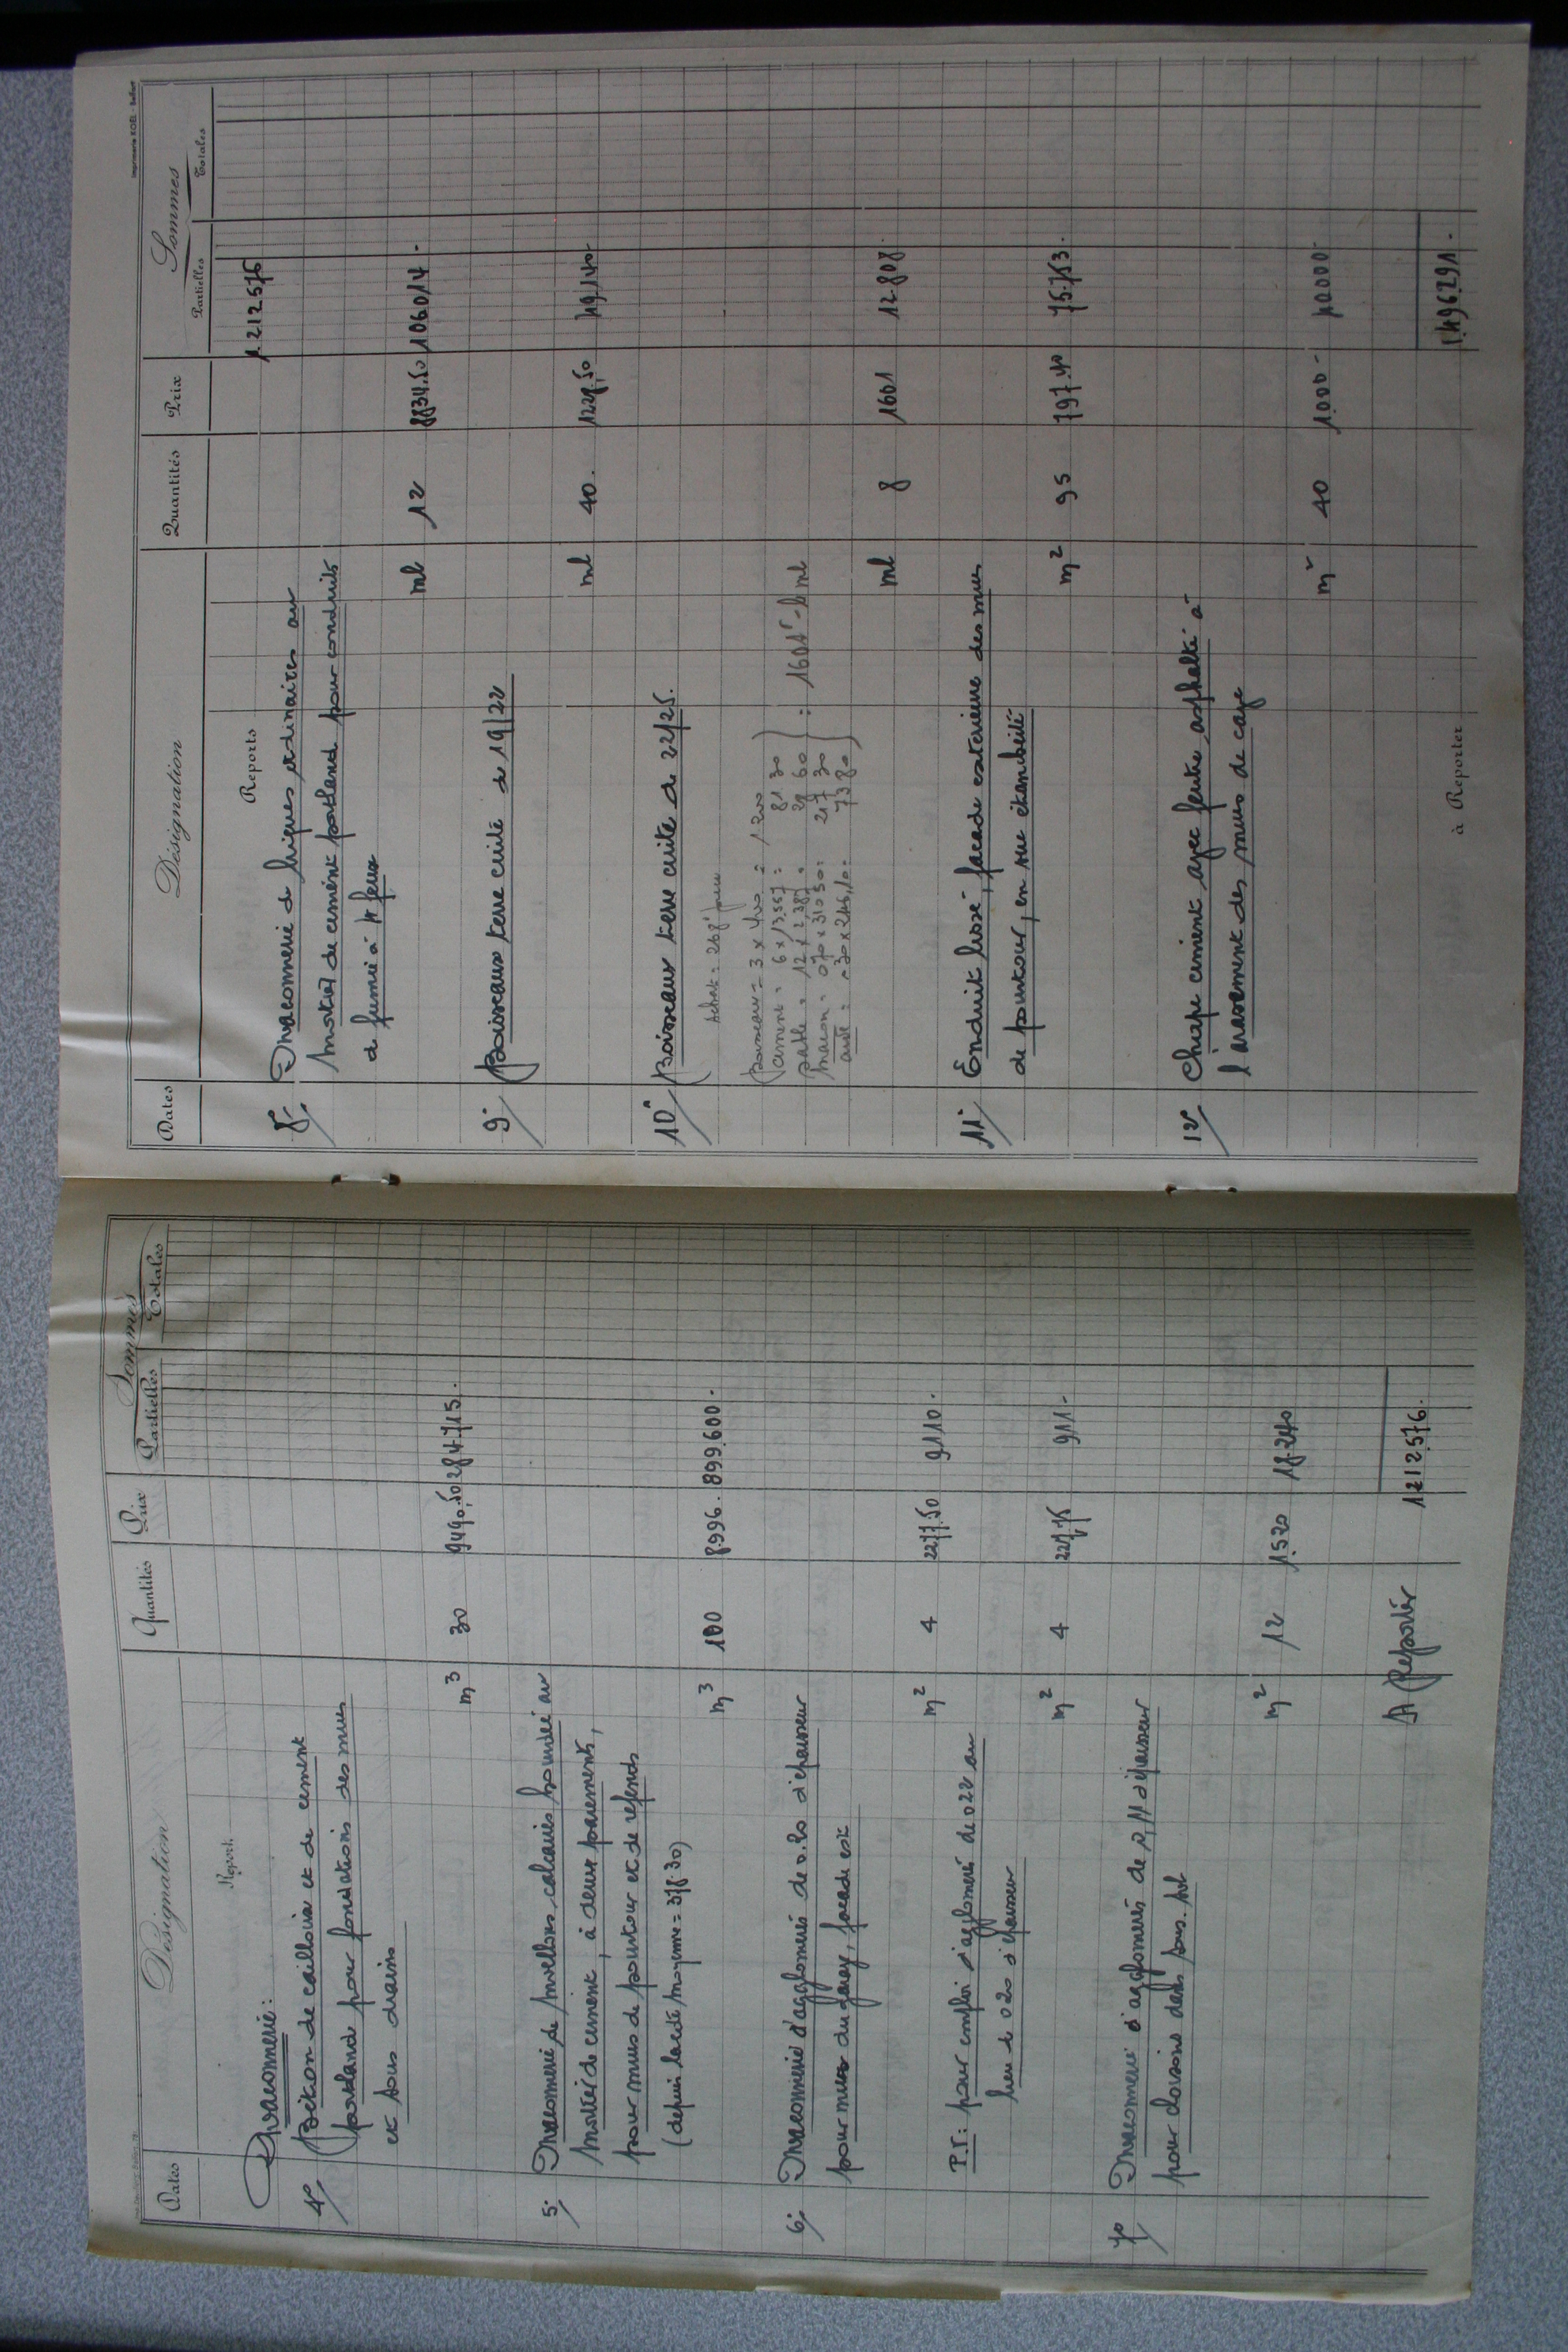 Dates Désignation Quantités Prix Sommes
Partielles Totales
Report
Maçonnerie :
4° Béton de cailloux et de ciment
portland pour fondations des murs
et sous drains
m3 30 9490.50 284.715.
5° Maçonnerie de moellons calcaires hourdée au
mortier de ciment, à deux parements,
pour murs de pourtour et de refends
(depuis
m3 100 8.996. 899.600.-
6° Maçonnerie d'agglomérés de 0.20 d'épaisseur
pour murs du garage, façade est
m2 4 2277.50 9.110.-
P.V: pour emploi d'aggloméré de 022 au
lieu de 020 d'épaisseur
m2 4 227.75 911.-
7° Maçonnerie d'agglomérés de 0,11 d'épaisseur
pour cloisons dans sous-sol
m2 12 1.520 18.240
A Reporter 1.212.576.
Imprimerie KOEL - Belfort
Dates Désignation Quantités Prix Sommes
Partielles Totales
Reports 1.212.576
8° Maçonnerie de briques ordinaires au
mortier de ciment portland pour conduits
de fumée à 4 feux
ml 12 8834.50 106.014.-
9° Boisseaux terre cuite de 19/22
ml 40. 1228.50 49.140
10° Boisseaux terre cuite de 22/25.
Achat = 268f
Boisseaux = 3 x 400 = 1200
ciment = 6 x 13.557 = 81 30
sable = 12 x 2,387 = 28 60
maçon = 070 x 310 50 = 217 30
aide = 030 x 246,10 = 73 80
= 1601f le ml
ml 8 1601 12.808.
11° Enduit lissé, façade extérieure des murs
de pourtour, en vue étanchéité
m2 95 797.40 75.753.
12° Chape ciment avec feutre asphalté à
l'arasement des murs de cave
m2 40 1.000- 40000-
à Reporter 1.496.291.-